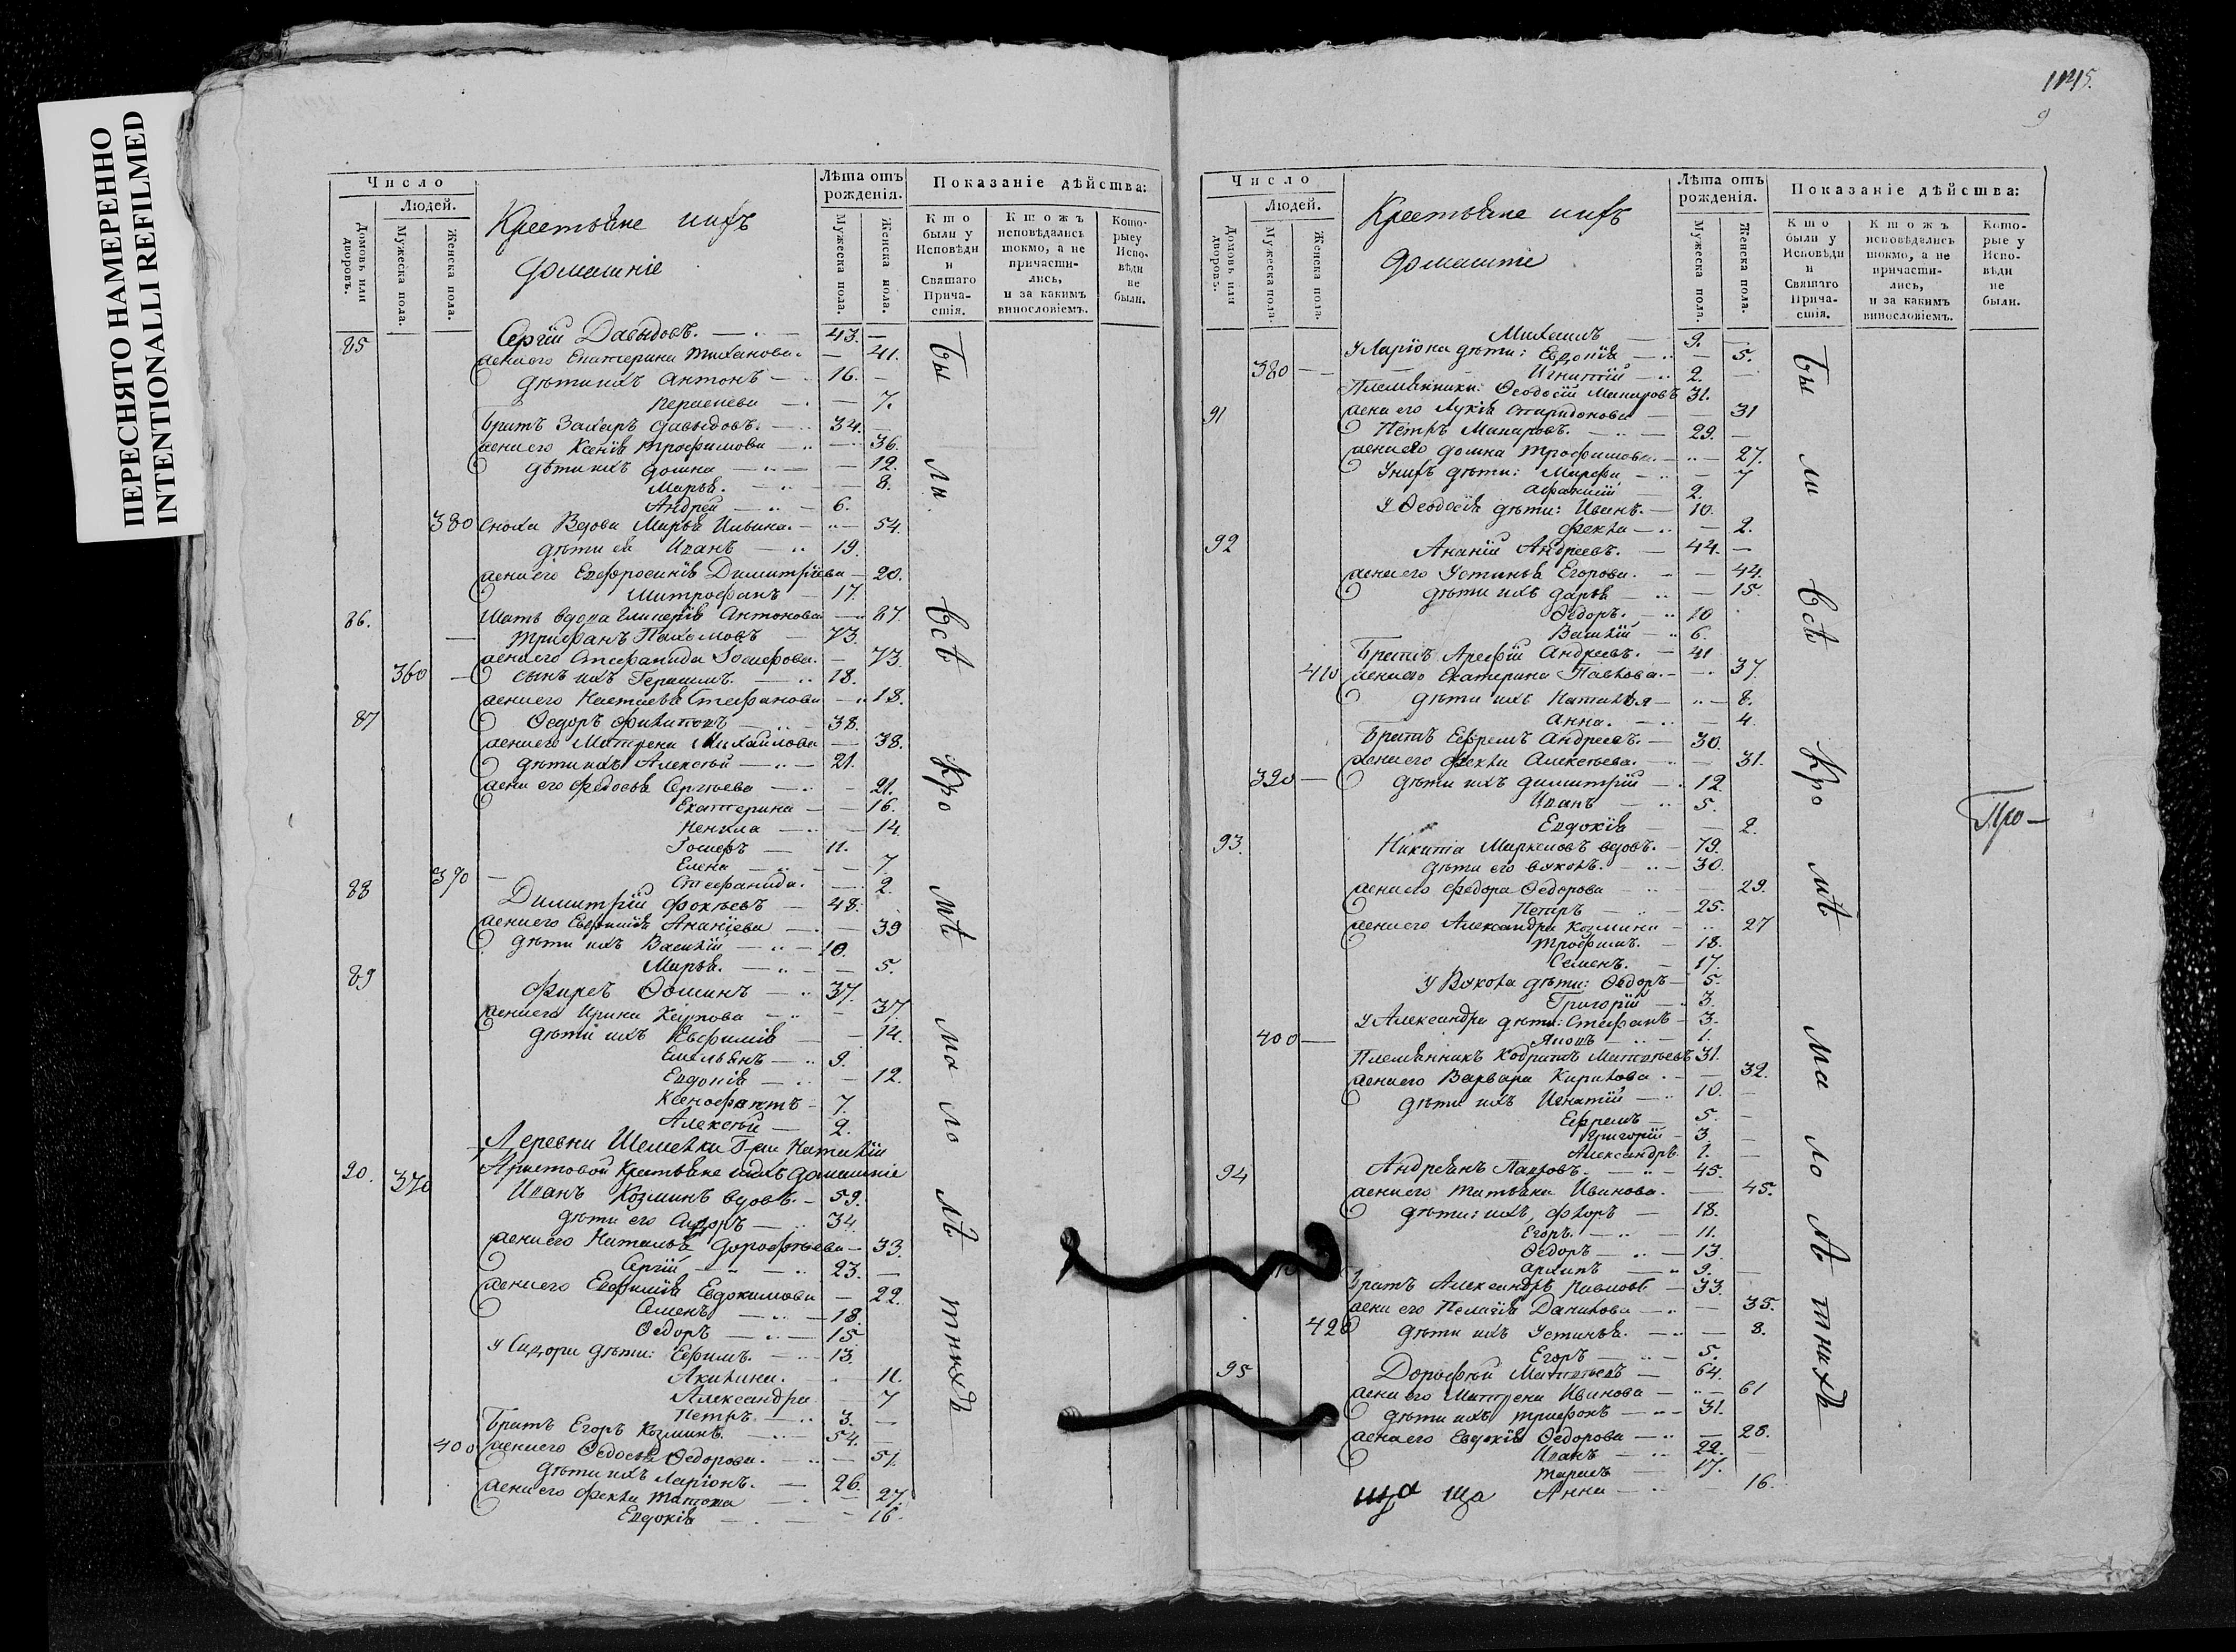 ПЕРЕСНЯТО НАМЕРЕННО
INTENTIONALLI REFILMED
Число
Людей.
Домовъ или дворовъ.
Мужеска пола.
Женска пола.
Крестьяне ихъ
домашніе
Лѣта отъ рожденія.
Мужеска пола.
Женска пола.
Показаніе дѣйства:
Кто были у Исповѣди и Святаго Причастія.
Ктожъ исповѣдались токмо, а не причастились, и за какимъ винословіемъ.
Которые у Исповѣди не были.
85 Сергій Давыдовъ. 43.
жена его Екатерина 41.
дѣти ихъ Антонъ 16.
7.
братъ Захаръ Давыдовъ. 34.
жена его Ксенія Трофимова 36.
дѣти ихъ Домна 12.
Марья. 8.
Андрей 6.
380 Сноха Вдова Марья Ильина. 54.
дѣти ея Иванъ 19.
жена его Евфросинія Димитріева 20.
Митрофанъ 17.
86. Мать вдова Гликерія Антонова 87.
Трифанъ Пахомовъ 73.
жена его Стефанида Іосифова. 73.
360 сынъ ихъ Герасимъ. 18.
жена его Настасья Стефанова 18.
87 Ѳедоръ Филиповъ 38.
жена его Матрена Михайлова 38.
дѣти ихъ Алексѣй 21.
жена его Федосья Сергѣева 21.
Екатерина 16.
Ненила 14.
Іосифъ 11.
Елена 7.
390 Стефанида. 2.
88 Димитрій Фокѣевъ 48.
жена его Евфимія Ананіева 39
дѣти ихъ Василій 10.
Марья. 5.
89 Фирсъ Ѳоминъ 37.
жена его Ирина Карпова 37.
дѣти ихъ Евфимія 14.
Емельянъ 9.
Евдокія 12.
Ксенофонтъ 7.
Алексѣй 2.
Деревни Шемелки Г-жи Наталіи
Аристовой Крестьяне ихъ домашніе
90. 370 Иванъ Козминъ вдовъ. 59.
дѣти его Сидоръ 34.
жена его Наталья Дорофѣева 33.
Сергій 23.
жена его Евфимія Евдокимова 22.
Семенъ 18.
Ѳедоръ 15
У Сидора дѣти: Ефимъ. 13.
Акилина. 11.
Александра 7
Петръ. 3.
братъ Егоръ Козминъ. 54.
400 жена его Ѳедосья Ѳедорова. 51.
дѣти ихъ Ларіонъ. 26.
жена его Фекла 27.
Евдокія 16.
бы
ли
всѣ
кро
мѣ
ма
ло
лѣ
тнихъ
9
Число
Людей.
Домовъ или дворовъ.
Мужеска пола.
Женска пола.
Крестьяне ихъ
домашніе
Лѣта отъ рожденія.
Мужеска пола.
Женска пола.
Показаніе дѣйства:
Кто были у Исповѣди и Святаго Причастія.
Ктожъ исповѣдались токмо, а не причастились, и за какимъ винословіемъ.
Которые у Исповѣди не были.
Михаилъ 9.
У Ларіона дѣти: Евдокія 5.
380 Игнатій 2.
Племянники: Ѳеодосій Макаровъ 31.
91 жена его Лукія Спиридонова 31
Петръ Макаровъ. 29.
жена его Домна Трофимова. 27.
У нихъ дѣти: Марфа 7
Афанасій 2.
У Ѳеодосія дѣти: Иванъ. 10.
Фекла 2.
92 Ананій Андреевъ. 44.
жена его Устинья Егорова. 44.
дѣти ихъ Дарья 15.
Ѳедоръ. 10
Василій 6.
братъ Арефій Андреевъ. 41
410 жена его Екатерина Павлова. 37.
дѣти ихъ Наталья 8.
Анна. 4.
братъ Ефремъ Андреевъ. 30.
жена его Фекла Алексѣева. 31.
390 дѣти ихъ Димитрій 12.
Иванъ 5.
Евдокія 2.
93. Никита Маркеловъ вдовъ. 79.
дѣти его Вуколъ. 30.
жена его Федора Ѳедорова 29.
Петръ 25.
жена его Александра Козмина 27
Трофимъ. 18.
Семенъ. 17.
У Вукола дѣти: Ѳедоръ 5.
Григорій 3.
У Александра дѣти: Стефанъ 3.
400 Яковъ 1.
Племянникъ Кодратъ Матвѣевъ 31.
жена его Варвара Кирилова. 32.
дѣти ихъ Игнатій 10.
Ефремъ 5.
Григорій 3.
Александръ 1.
94 Андреянъ Павловъ. 45.
жена его Татьяна Иванова. 45.
дѣти: ихъ, Флоръ 18.
Егоръ. 11.
Ѳедоръ 13.
Архипъ 9.
братъ Александръ Павловъ 33.
жена его Пелагія Данилова 35.
420 дѣти ихъ Устинья. 8.
Егоръ 5.
95 Дорофѣй Матвѣевъ 64.
жена его Матрена Иванова 61
дѣти ихъ Трифонъ 31.
жена его Евдокія Ѳедорова 28.
Иванъ 22.
Тарасъ 17.
Анна 16.
ща ща
бы
ли
всѣ
кро
мѣ
ма
ло
лѣ
тнихъ
Про-